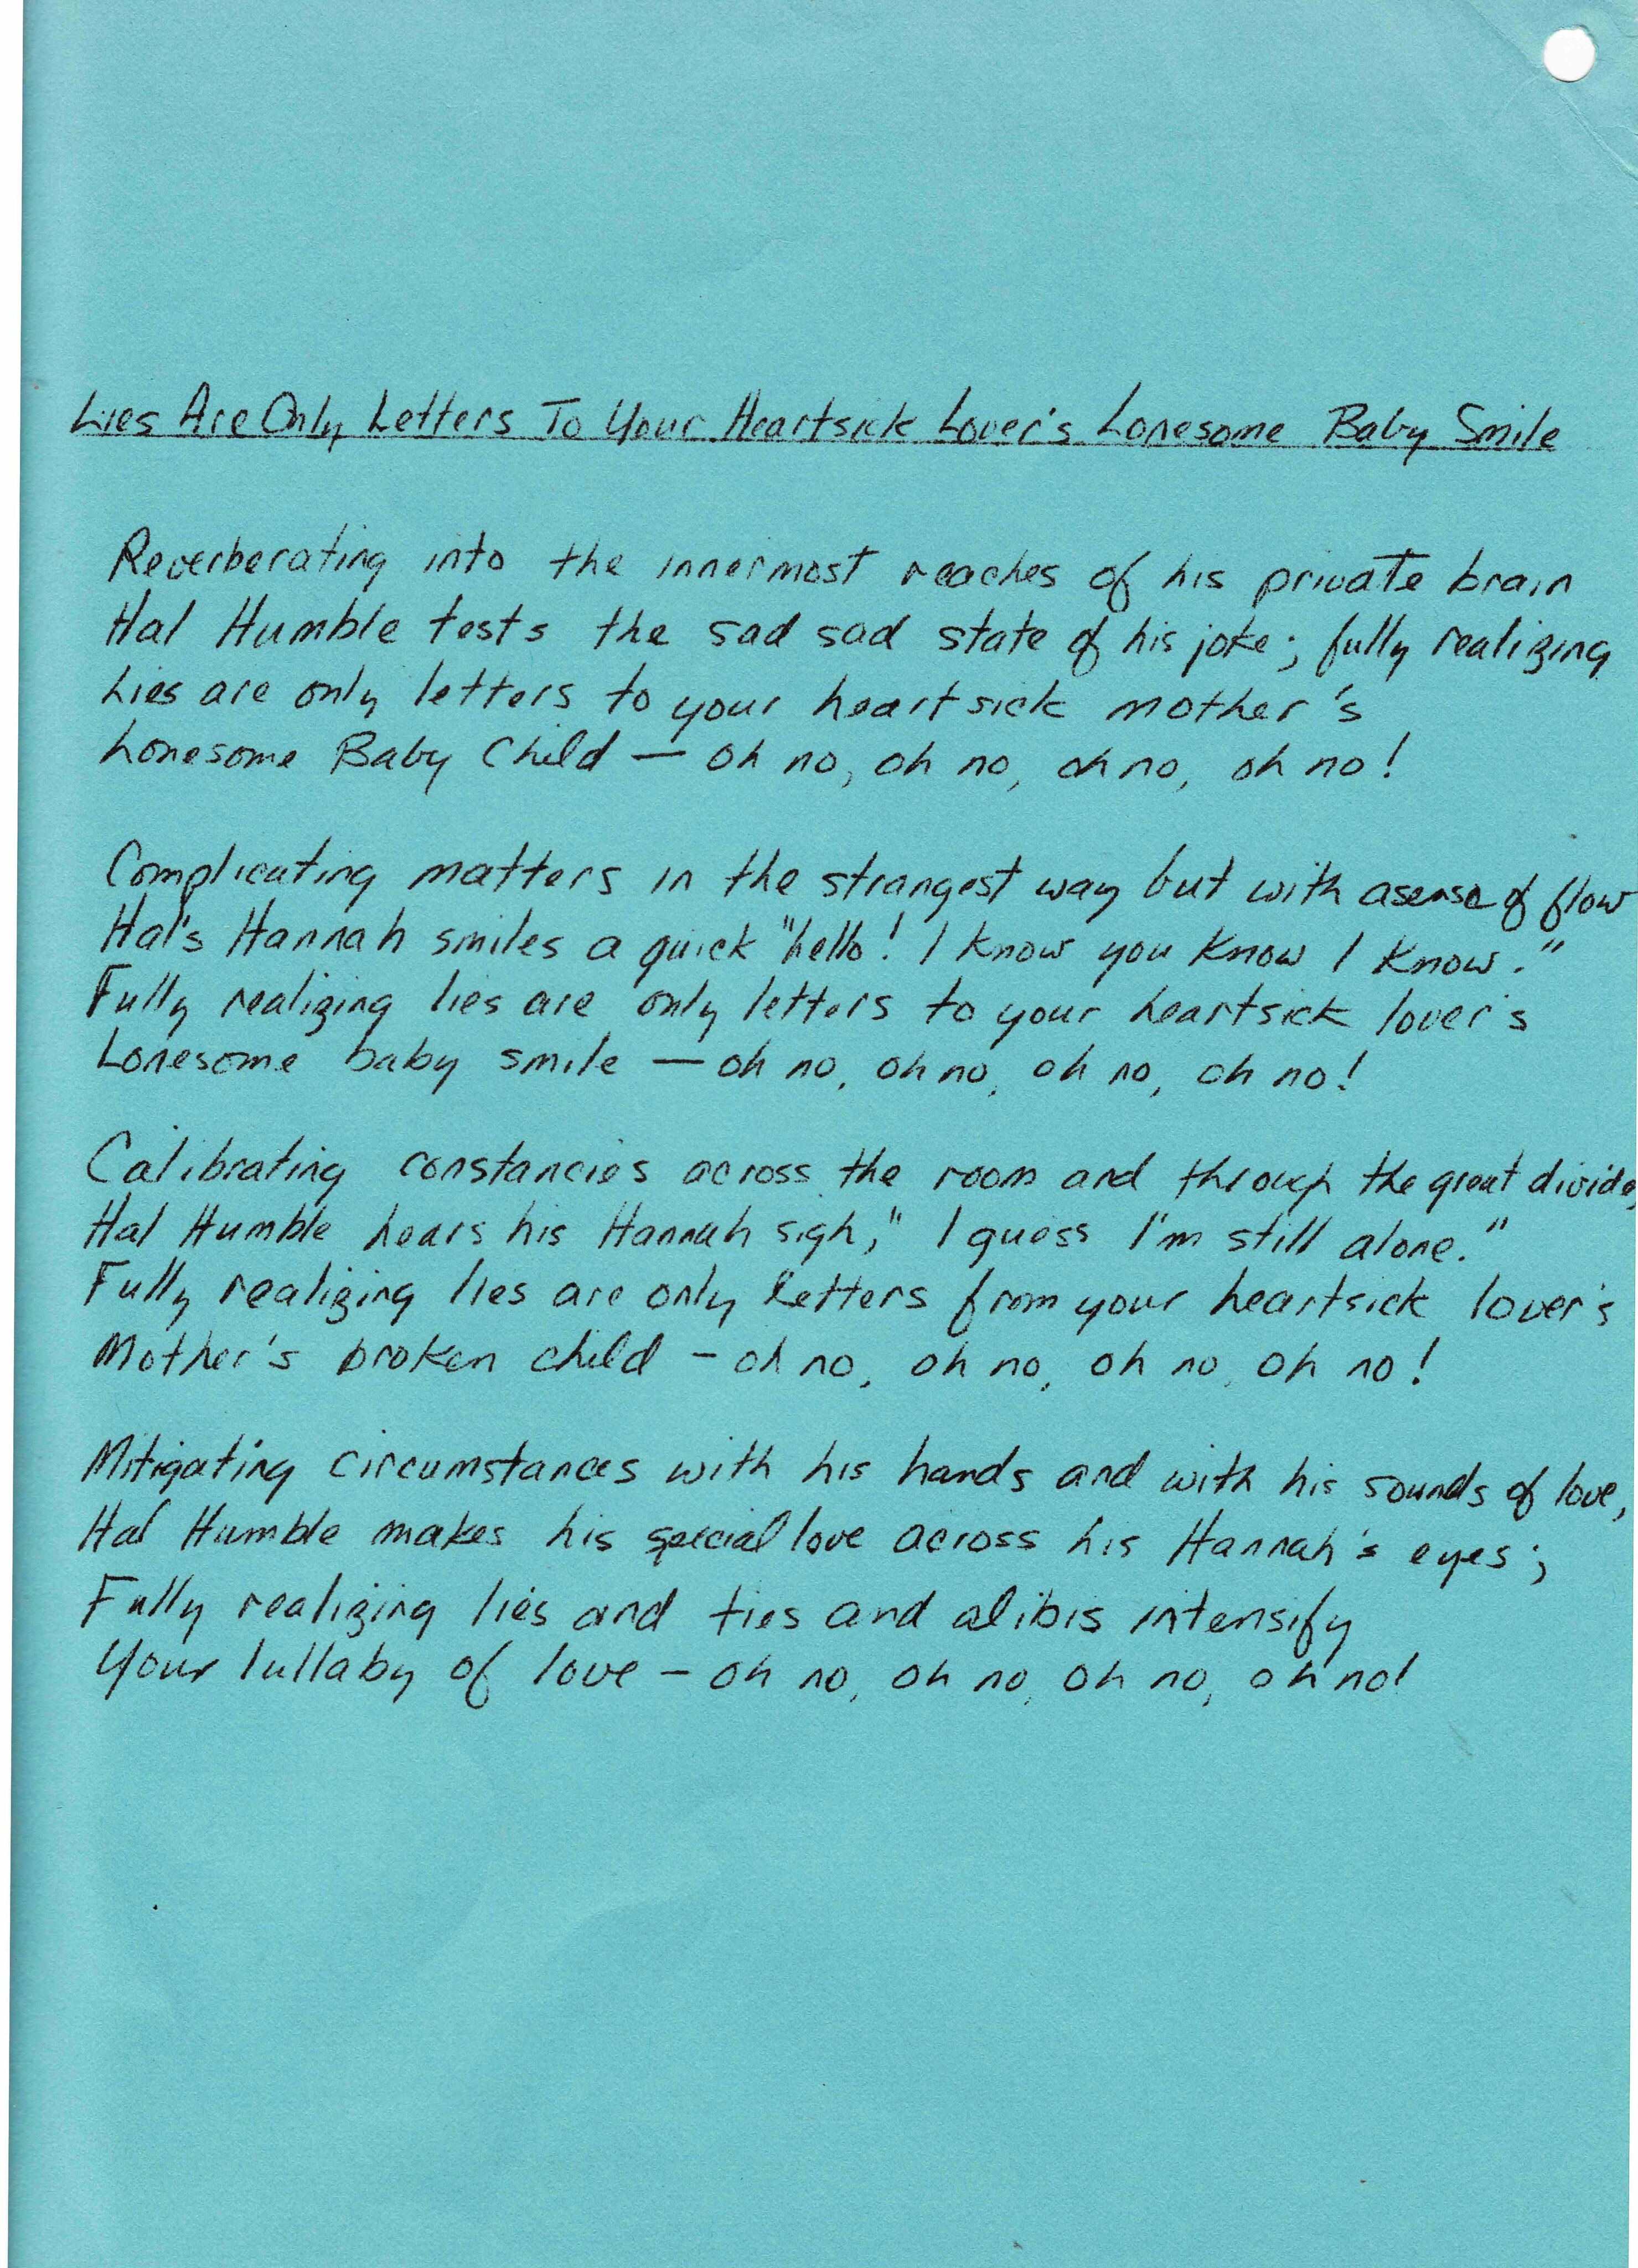 Lies Are Only Letters To Your Heartsick Lover's Lonesome Baby Smile
Reverberating into the innermost reaches of his private brain
Hal Humble tests the sad sad state of his joke; fully realizing
Lies are only letters to your heartsick mother's
Lonesome Baby Child — oh no, oh no, oh no, oh no!
Complicating matters in the strangest way but with a sense of flow
Hal's Hannah smiles a quick "hello! I know you know I know."
Fully realizing lies are only letters to your heartsick lover's
Lonesome baby smile — oh no, oh no, oh no, oh no!
Calibrating constancies across the room and through the great divide,
Hal Humble hears his Hannah sigh, "I guess I'm still alone."
Fully realizing lies are only letters from your heartsick lover's
Mother's broken child - oh no, oh no, oh no, oh no!
Mitigating circumstances with his hands and with his sounds of love,
Hal Humble makes his special love across his Hannah's eyes;
Fully realizing lies and ties and alibis intensify
Your lullaby of love - oh no, oh no, oh no, oh no!